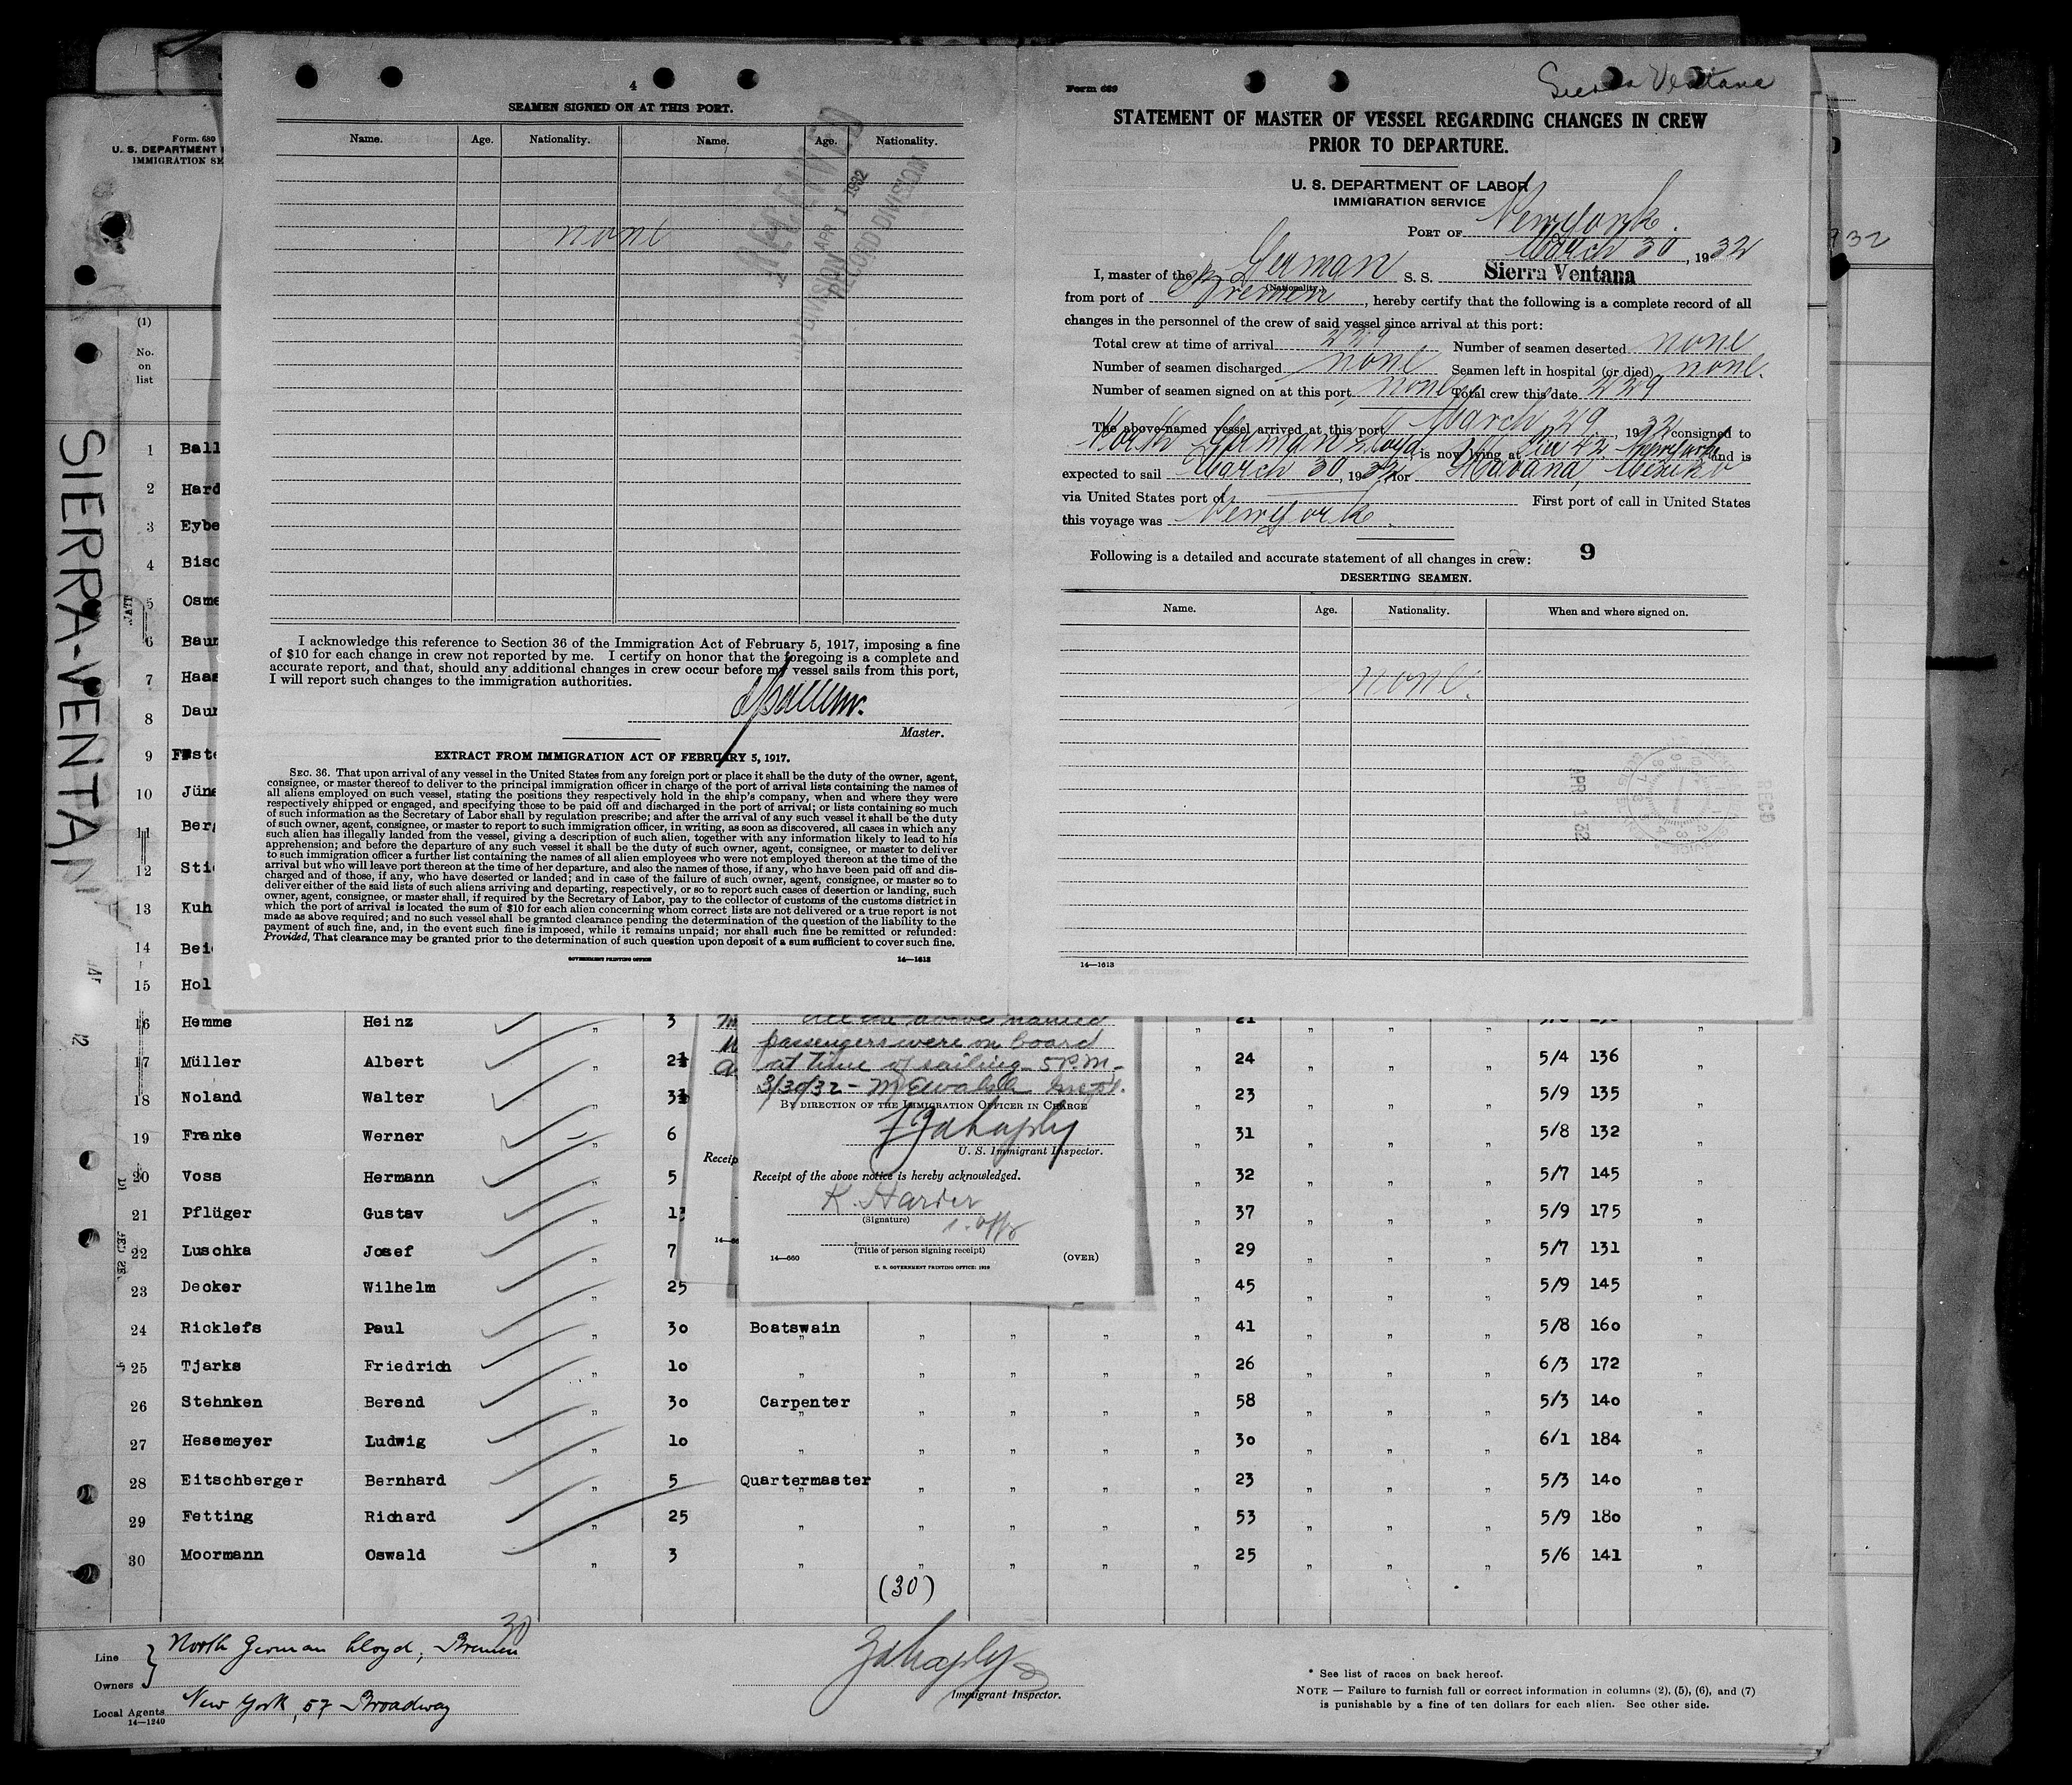 4
SEAMEN SIGNED ON AT THIS PORT.
Name. Age. Nationality. Name. Age. Nationality.
none
RECEIVED
APR 1 1932
RECORD DIVISION
I acknowledge this reference to Section 36 of the Immigration Act of February 5, 1917, imposing a fine
of $10 for each change in crew not reported by me. I certify on honor that the foregoing is a complete and
accurate report, and that, should any additional changes in crew occur before my vessel sails from this port,
I will report such changes to the immigration authorities.
Master.
EXTRACT FROM IMMIGRATION ACT OF FEBRUARY 5, 1917.
SEC. 36. That upon arrival of any vessel in the United States from any foreign port or place it shall be the duty of the owner, agent,
consignee, or master thereof to deliver to the principal immigration officer in charge of the port of arrival lists containing the names of
all aliens employed on such vessel, stating the positions they respectively hold in the ship's company, when and where they were
respectively shipped or engaged, and specifying those to be paid off and discharged in the port of arrival; or lists containing so much
of such information as the Secretary of Labor shall by regulation prescribe; and after the arrival of any such vessel it shall be the duty
of such owner, agent, consignee, or master to report to such immigration officer, in writing, as soon as discovered, all cases in which any
such alien has illegally landed from the vessel, giving a description of such alien, together with any information likely to lead to his
apprehension; and before the departure of any such vessel it shall be the duty of such owner, agent, consignee, or master to deliver
to such immigration officer a further list containing the names of all alien employees who were not employed thereon at the time of the
arrival but who will leave port thereon at the time of her departure, and also the names of those, if any, who have been paid off and dis-
charged and of those, if any, who have deserted or landed; and in case of the failure of such owner, agent, consignee, or master so to
deliver either of the said lists of such aliens arriving and departing, respectively, or so to report such cases of desertion or landing, such
owner, agent, consignee, or master shall, if required by the Secretary of Labor, pay to the collector of customs of the customs district in
which the port of arrival is located the sum of $10 for each alien concerning whom correct lists are not delivered or a true report is not
made as above required; and no such vessel shall be granted clearance pending the determination of the question of the liability to the
payment of such fine, and, in the event such fine is imposed, while it remains unpaid; nor shall such fine be remitted or refunded:
Provided, That clearance may be granted prior to the determination of such question upon deposit of a sum sufficient to cover such fine.
GOVERNMENT PRINTING OFFICE 14—1613
Form 689
Sierra Ventana
STATEMENT OF MASTER OF VESSEL REGARDING CHANGES IN CREW
PRIOR TO DEPARTURE.
U. S. DEPARTMENT OF LABOR
IMMIGRATION SERVICE
PORT OF New York.
March 30, 1932
I, master of the German S. S. Sierra Ventana
(Nationality.)
from port of Bremen, hereby certify that the following is a complete record of all
changes in the personnel of the crew of said vessel since arrival at this port:
Total crew at time of arrival 229 Number of seamen deserted none
Number of seamen discharged none Seamen left in hospital (or died) none.
Number of seamen signed on at this port none Total crew this date 229
The above-named vessel arrived at this port March 29, 1932 consigned to
North German Lloyd, is now lying at Pier 42 New York and is
expected to sail March 30, 1932, for Havana, Mexiko
via United States port of First port of call in United States
this voyage was New York.
Following is a detailed and accurate statement of all changes in crew: 9
DESERTING SEAMEN.
Name. Age. Nationality. When and where signed on.
none.
REC'D
APR 1 32
14—1613
Form. 689
U. S. DEPARTMENT
IMMIGRATION SE
932
SIERRA-VENTANA
(1)
No.
on
list
1 Ball
2 Hard
3 Eybe
4 Bisc
5 Osme
6 Baum
7 Haas
8 Daum
9 Fuste
10 Jüne
11 Berg
12 Sti
13 Kuh
14 Bei
15 Hol
16 Hemme Heinz " 3 " 21
17 Müller Albert " 2½ " 24 " " " 5/4 136 "
18 Noland Walter " 3½ " 23 " " " 5/9 135 "
19 Franke Werner " 6 " 31 " " " 5/8 132 "
20 Voss Hermann " 5 " 32 " " " 5/7 145 "
21 Pflüger Gustav " 13 " 37 " " " 5/9 175 "
22 Luschka Josef " 7 " 29 " " " 5/7 131 "
23 Decker Wilhelm " 25 " 45 " " " 5/9 145 "
24 Ricklefs Paul " 30 Boatswain " " " " 41 " " " 5/8 160 "
25 Tjarks Friedrich " 10 " " " " " 26 " " " 6/3 172 "
26 Stehnken Berend " 30 Carpenter " " " " 58 " " " 5/3 140 "
27 Hesemeyer Ludwig " 10 " " " " " 30 " " " 6/1 184 "
28 Eitschberger Bernhard " 5 Quartermaster " " " " 23 " " " 5/3 140 "
29 Fetting Richard " 25 " " " " " 53 " " " 5/9 180 "
30 Moormann Oswald " 3 " " " " " 25 " " " 5/6 141 "
(30)
all the above named
passengers were on board
at time of sailing 5 P.M.
3/30/32 - McEwalsh Inspt.
BY DIRECTION OF THE IMMIGRATION OFFICER IN CHARGE
U. S. Immigrant Inspector.
Receip
Receipt of the above notice is hereby acknowledged.
K. Harder
(Signature)
1. Offz
(Title of person signing receipt)
14—660 (OVER)
U. S. GOVERNMENT PRINTING OFFICE: 1929
30
Line North German Lloyd, Bremen
Owners
Local Agents New York, 57 Broadway
14—1240
Immigrant Inspector.
* See list of races on back hereof.
NOTE — Failure to furnish full or correct information in columns (2), (5), (6), and (7)
is punishable by a fine of ten dollars for each alien. See other side.